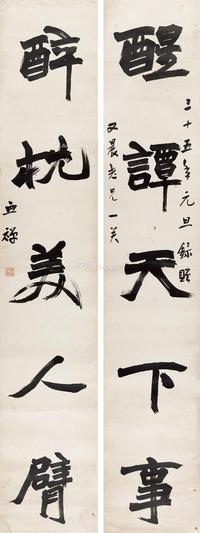 醒譚天下事
三十五年元旦錄賜
又晨老兄一笑
醉枕美人臂
亚禪